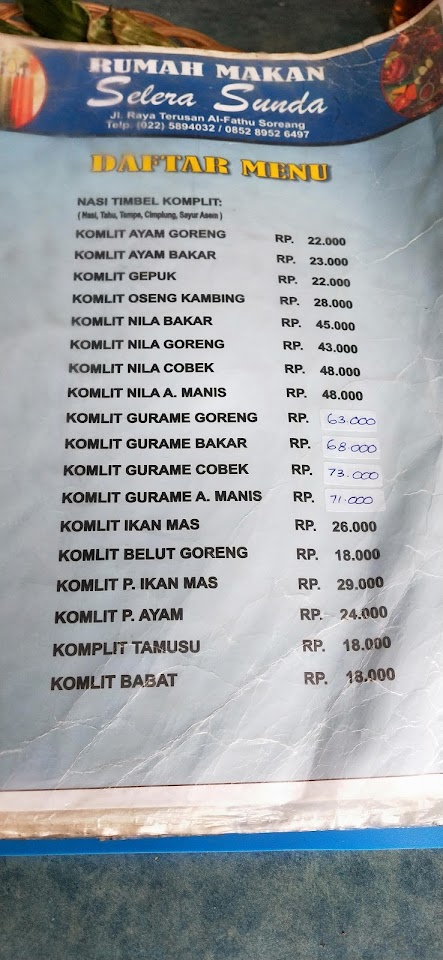 RUMAH MAKAN
Selera Sunda
Jl. Raya Terusan Al-Fathu Soreang
Telp. (022) 5894032 / 0852 8952 6497
DAFTAR MENU
NASI TIMBEL KOMPLIT:
( Nasi, Tahu, Tempe, Cimplung, Sayur Asem )
KOMLIT AYAM GORENG RP. 22.000
KOMLIT AYAM BAKAR RP. 23.000
KOMLIT GEPUK RP. 22.000
KOMLIT OSENG KAMBING RP. 28.000
KOMLIT NILA BAKAR RP. 45.000
KOMLIT NILA GORENG RP. 43.000
KOMLIT NILA COBEK RP. 48.000
KOMLIT NILA A. MANIS RP. 48.000
KOMLIT GURAME GORENG RP. 63.000
KOMLIT GURAME BAKAR RP. 68.000
KOMLIT GURAME COBEK RP. 73.000
KOMLIT GURAME A. MANIS RP. 71.000
KOMLIT IKAN MAS RP. 26.000
KOMLIT BELUT GORENG RP. 18.000
KOMLIT P. IKAN MAS RP. 29.000
KOMLIT P. AYAM RP. 24.000
KOMPLIT TAMUSU RP. 18.000
KOMLIT BABAT RP. 18.000